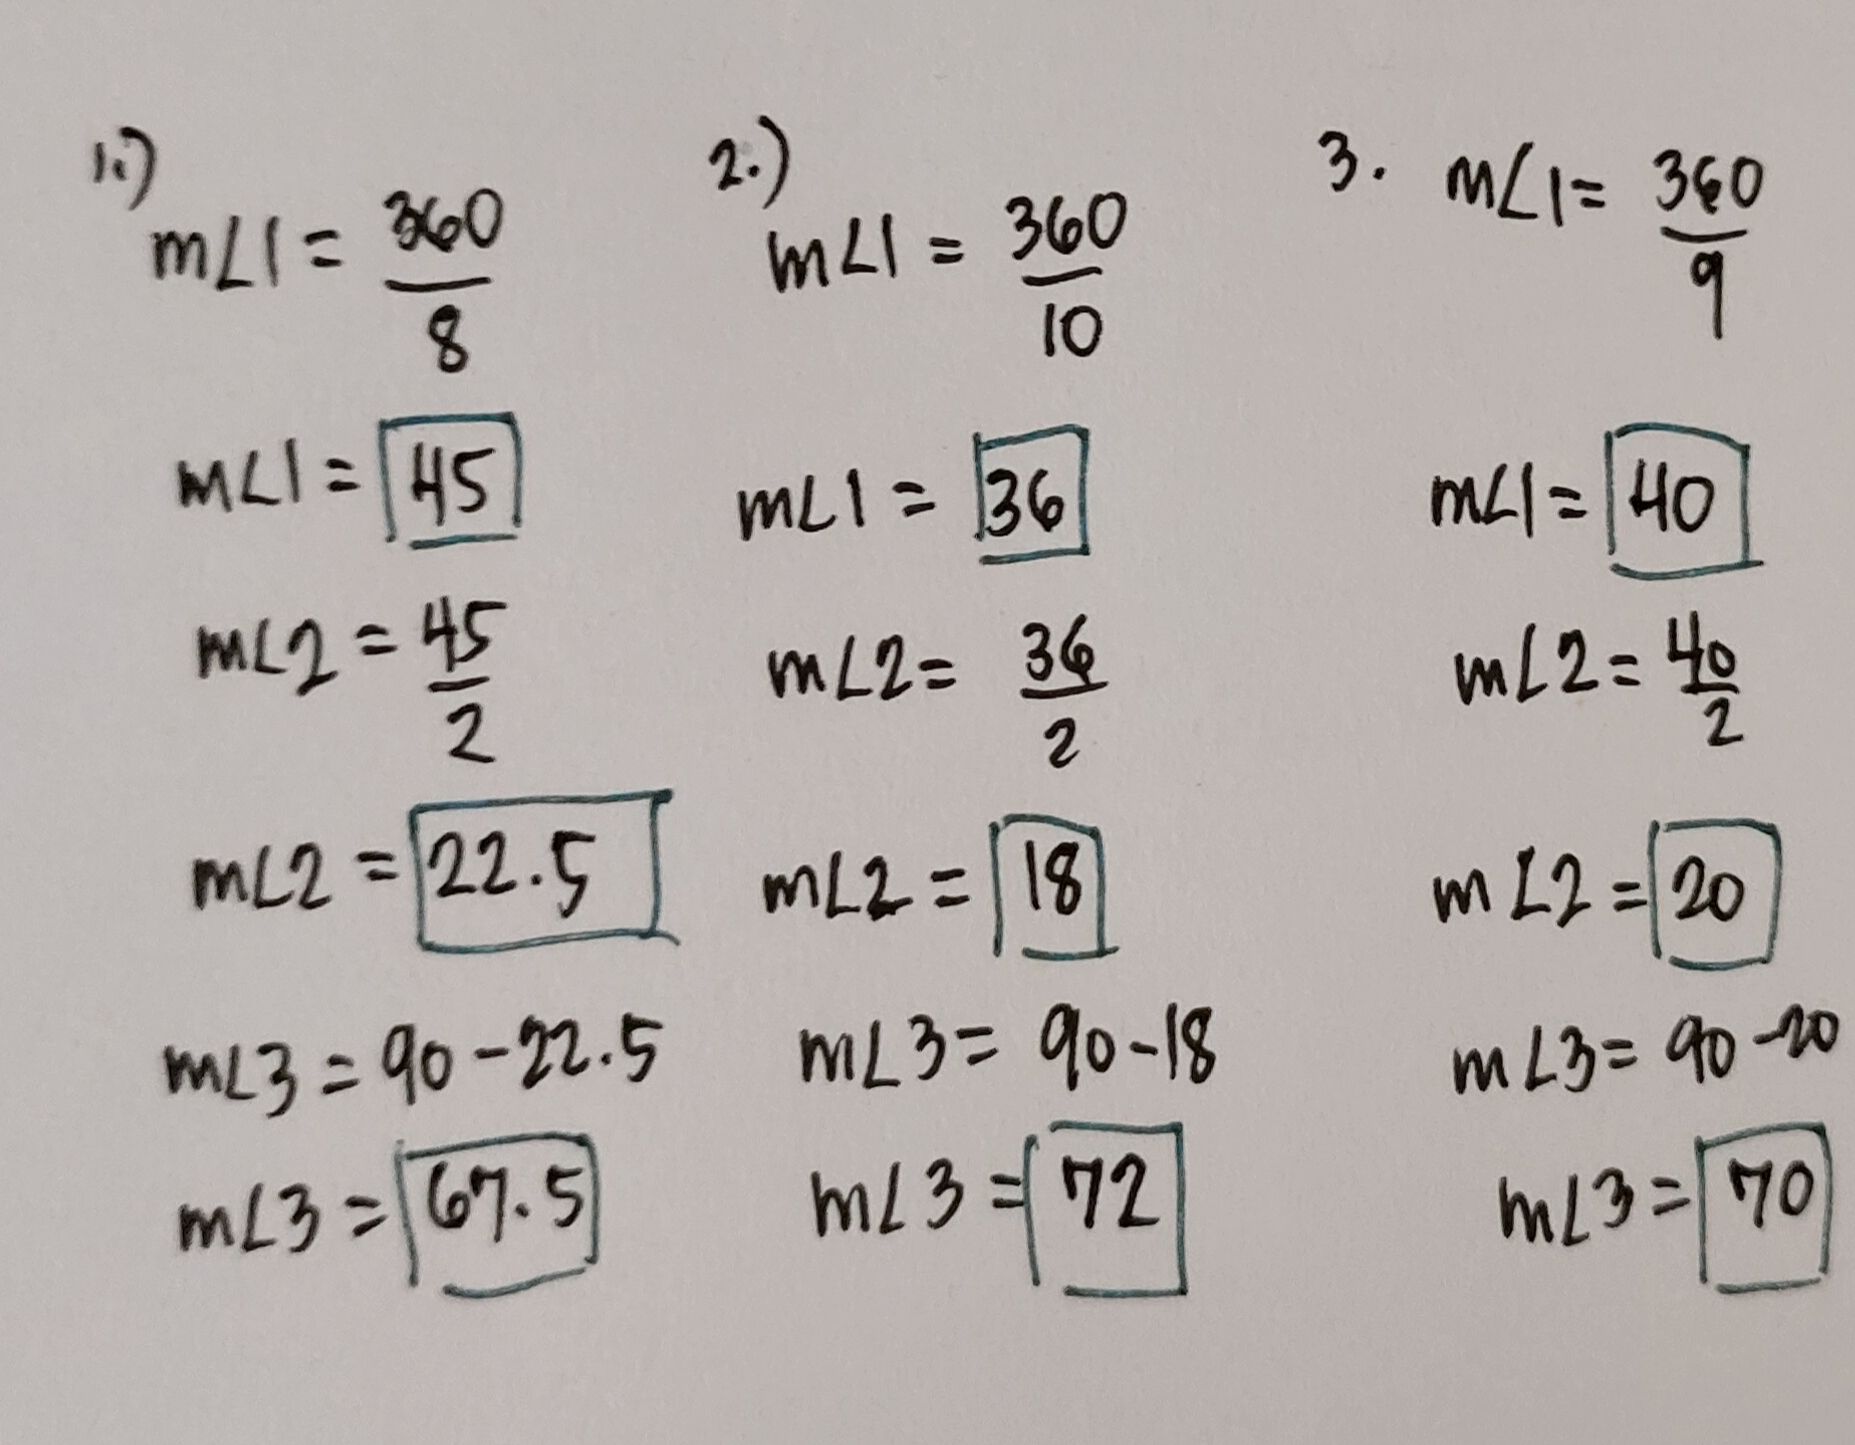 1.)
m∠1 = 360/8
m∠1 = 45
m∠2 = 45/2
m∠2 = 22.5
m∠3 = 90 - 22.5
m∠3 = 67.5
2.)
m∠1 = 360/10
m∠1 = 36
m∠2 = 36/2
m∠2 = 18
m∠3 = 90 - 18
m∠3 = 72
3. m∠1 = 360/9
m∠1 = 40
m∠2 = 40/2
m∠2 = 20
m∠3 = 90 - 20
m∠3 = 70